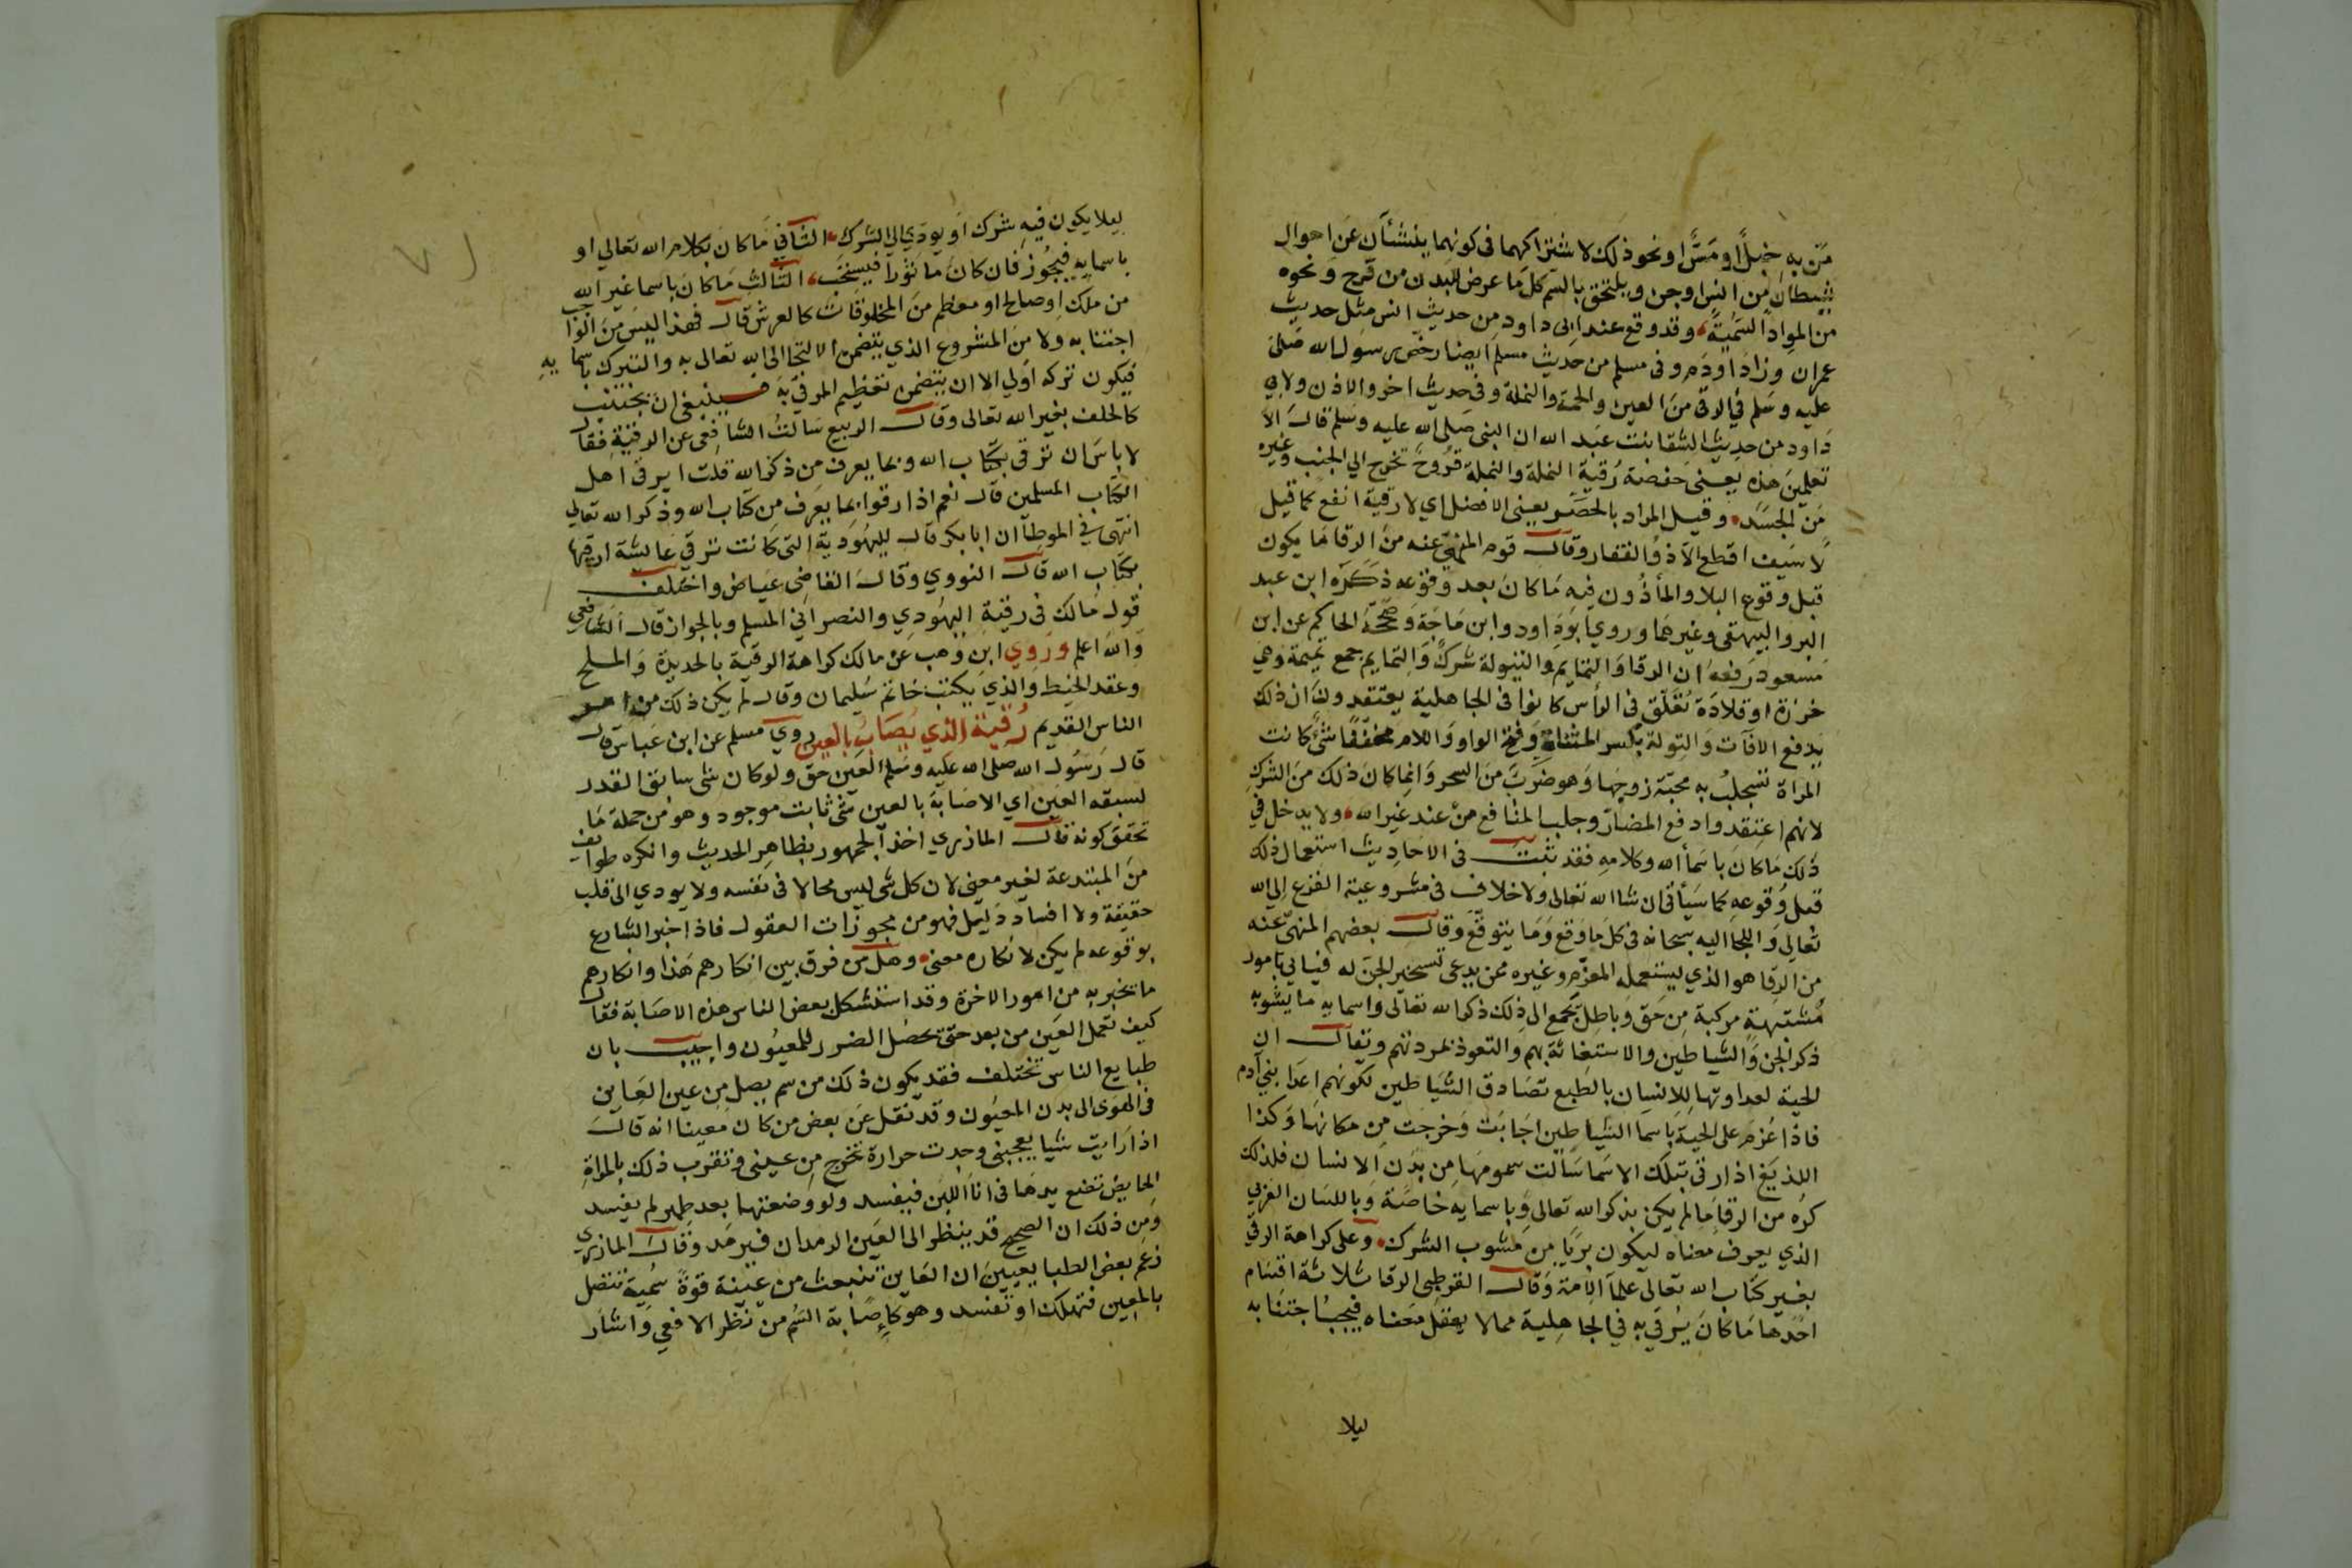 مَن به خبلًا او مَسًّا او نحو ذلك لاشتراكهما في كونهما ينشئان عن احوال
شيطان من انس او جن ويلتحق بالسم كل ما عرض للبدن من قرح ونحوه
من المواد السمية وقد وقع عند ابي داود من حديث انس مثل حديث
عمران وزاد اودم وفي مسلم من حديث مسلم ايضا رخص رسول الله صلى
عليه وسلم في الرقى من العين والحمة والنملة وفي حديث اخر والاذن ولابي
داود من حديث الشفا بنت عبد الله ان النبي صلى الله عليه وسلم قال الا
تعلمين هذه يعني حفصة رُقية النملة والنملة قروح تخرج الي الجنب وغيره
من الجسد وقيل المراد بالحصر يعني الافضل اي لا رقية انفع كما قيل
لا سيف اقطع الا ذو الفقار وقال قوم المنهي عنه من الرقا ما يكون
قبل وقوع البلا والمأذون فيه ما كان بعد وقوعه ذكره ابن عبد
البر والبيهقي وغيرهما وروي ابو داود وابن ماجة وصححه الحاكم عن ابن
مسعود رفعه ان الرقا والتمايم والتيولة شرك والتمايم جمع تميمة وهي
خرزة او قلادة تُعَلّق في الراس كانوا في الجاهلية يعتقدون ان ذلك
يدفع الافات والتولة بكسر المثناة وفتح الواو واللام مخففا شي كانت
المراة تستجلب به محبة زوجها وهو ضرب من السحر وانما كان ذلك من الشرك
لانهم اعتقدوا دفع المضار وجلب المنافع من عند غير الله ولا يدخل في
ذلك ما كان باسما الله وكلامه فقد ثبت في الاحاديث استعمال ذلك
قبل وقوعه كما سيأتي ان شا الله تعالى ولا خلاف في مشروعية الفزع الى الله
تعالى واللجا اليه سبحانه في كل ما وقع وما يتوقع وقال بعضهم المنهي عنه
من الرقا هو الذي يستعمله المعزم وغيره ممن يدعى تسخير الجن له فيأتي بامور
مشتبهة مركبة من حق وباطل تجمع الى ذلك ذكر الله تعالى واسمايه ما يشوبه
ذكر الجن والشياطين والاستغاثة بهم والتعوذ بمردتهم ويقال ان
الحية لعداوتها للانسان بالطبع تصادق الشياطين لكونهم اعدا بني آدم
فاذا عُزم على الحية باسما الشياطين اجابت وخرجت من مكانها وكذا
اللذيغ اذا رقى بتلك الاسما سالت سمومها من بدن الانسان فلذلك
كره من الرقا ما لم يكن بذكر الله تعالى وباسمايه خاصة وباللسان العربي
الذي يعرف معناه ليكون بريا من مشوب الشرك وعلى كراهة الرقى
بغير كتاب الله تعالى علما الامة وقال القرطبي الرقا ثلاثة اقسام
احدها ما كان يُرقي به في الجاهلية مما لا يعقل معناه فيجب اجتنابه
ليلا
ليلا يكون فيه شرك او يودي الى الشرك الثاني ما كان بكلام الله تعالى او
باسمايه فيجوز فان كان ماثورا فيستحب الثالث ما كان باسما غير الله
من ملك او صالح او معظم من المخلوقات كالعرش قال فهذا ليس من الواجب
اجتنابه ولا من المشروع الذي يتضمن الالتجا الى الله تعالى به والتبرك باسمايه
فيكون تركه اولى الا ان يتضمن تعظيم المرقي به فينبغي ان يجتنب
كالحلف بغير الله تعالى وقال الربيع سالت الشافعي عن الرقية فقال
لا باس ان ترقى بكتاب الله وبما يعرف من ذكر الله قلت ايرقى اهل
الكتاب المسلمين قال نعم اذا رقوا بما يعرف من كتاب الله وذكر الله تعالى
انتهى في الموطا ان ابا بكر قال لليهودية التي كانت ترقي عايشة ارقيها
بكتاب الله قال النووي وقال القاضي عياض واختلف
قول مالك في رقية اليهودي والنصراني المسلم وبالجواز قال الشافعي
والله اعلم وروي ابن وهب عن مالك كراهة الرقية بالحديدة والملح
وعقد الخيط والذي يكتب خاتم سليمان وقال لم يكن ذلك من امر
الناس القديم رُقية الذي يُصَابُ بالعين روي مسلم عن ابن عباس قال
قال رسول الله صلى الله عليه وسلم العين حق ولو كان شي سابق القدر
لسبقه العين اي الاصابة بالعين شي ثابت موجود وهو من جملة ما
تحقق كونه قال المازري اخذ الجمهور بظاهر الحديث وانكره طوايف
من المبتدعة لغير معنى لان كل شي ليس محالا في نفسه ولا يودي الى قلب
حقيقة ولا افساد دليل فهو من مجوزات العقول فاذا اخبر الشارع
بوقوعه لم يكن لانكاره معنى وهل من فرق بين انكارهم هذا وانكارهم
ما يخبر به من امور الاخرة وقد استشكل بعض الناس هذه الاصابة فقال
كيف تعمل العين من بعد حتى يحصل الضرر للمعيون واجيب بان
طبايع الناس تختلف فقد يكون ذلك من سم يصل من عين العاين
في الهوى الى بدن المعيون وقد نقل عن بعض من كان معينا انه قال
اذا رايت شيا يعجبني وجدت حرارة تخرج من عيني وتقرب ذلك بالمراة
الحايض تضع يدها في انا اللبن فيفسد ولو وضعتها بعد طهر لم يفسد
ومن ذلك ان الصحيح قد ينظر الى العين الرمدان فيرمد وقال المازري
زعم بعض الطبايعيين ان العاين تنبعث من عينه قوة سمية تتصل
بالمعين فتهلك او تفسد وهو كاصابة السُم من نظر الافعى واشار